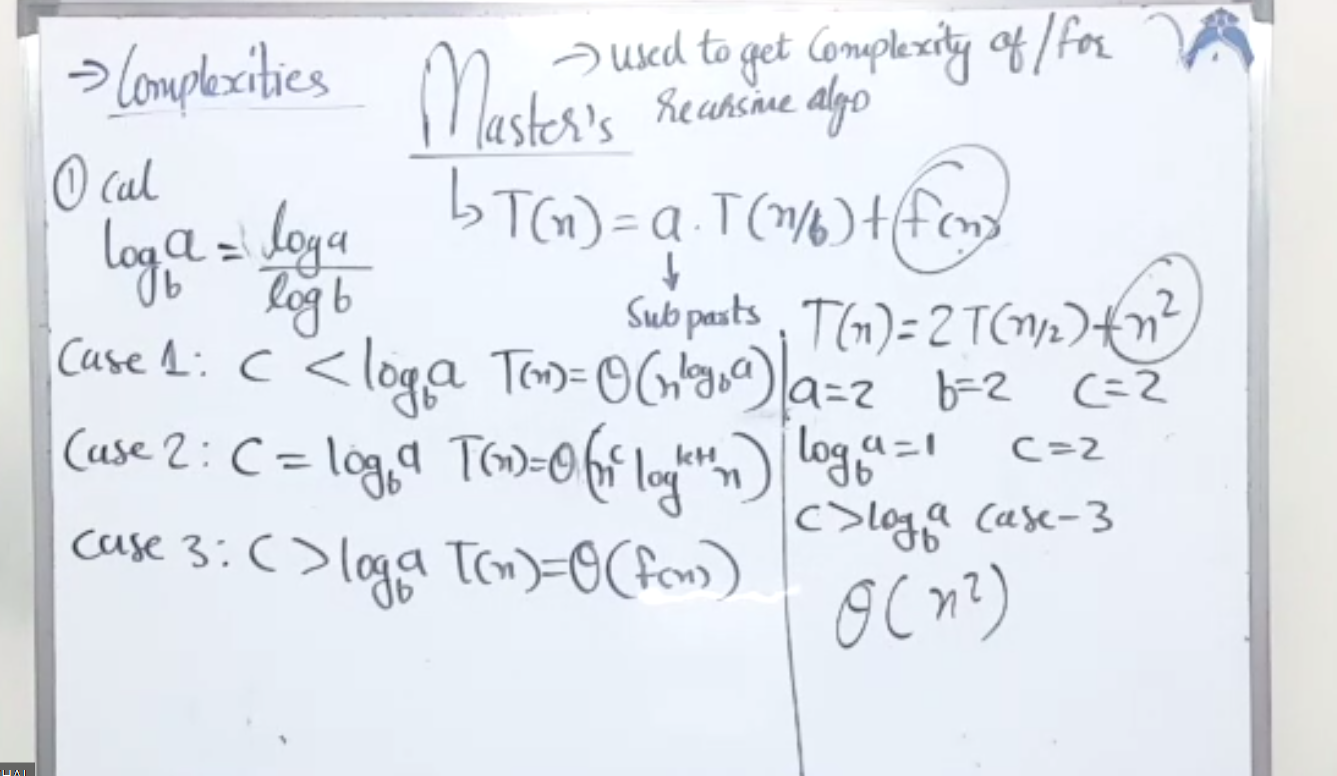 → Complexities
Master's
→ used to get Complexity of / for
Recursive algo
① cal
log_b a = log a / log b
↳ T(n) = a . T(n/b) + f(n)
↓
Sub parts
Case 1: C < log_b a T(n) = θ(n^(log_b a))
Case 2: C = log_b a T(n) = θ(n^c log^(k+1) n)
Case 3: C > log_b a T(n) = θ(f(n))
T(n) = 2T(n/2) + n²
a=2 b=2 C=2
log_b a = 1 C=2
C > log_b a Case-3
θ(n²)